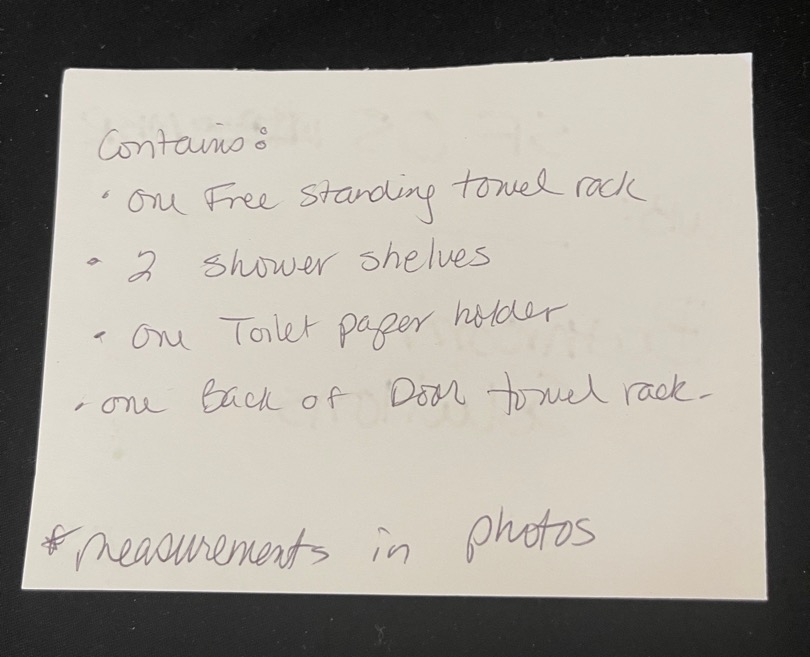 Contains:
• one Free standing towel rack
• 2 shower shelves
• one Toilet paper holder
• one Back of Door towel rack-
* measurements in photos